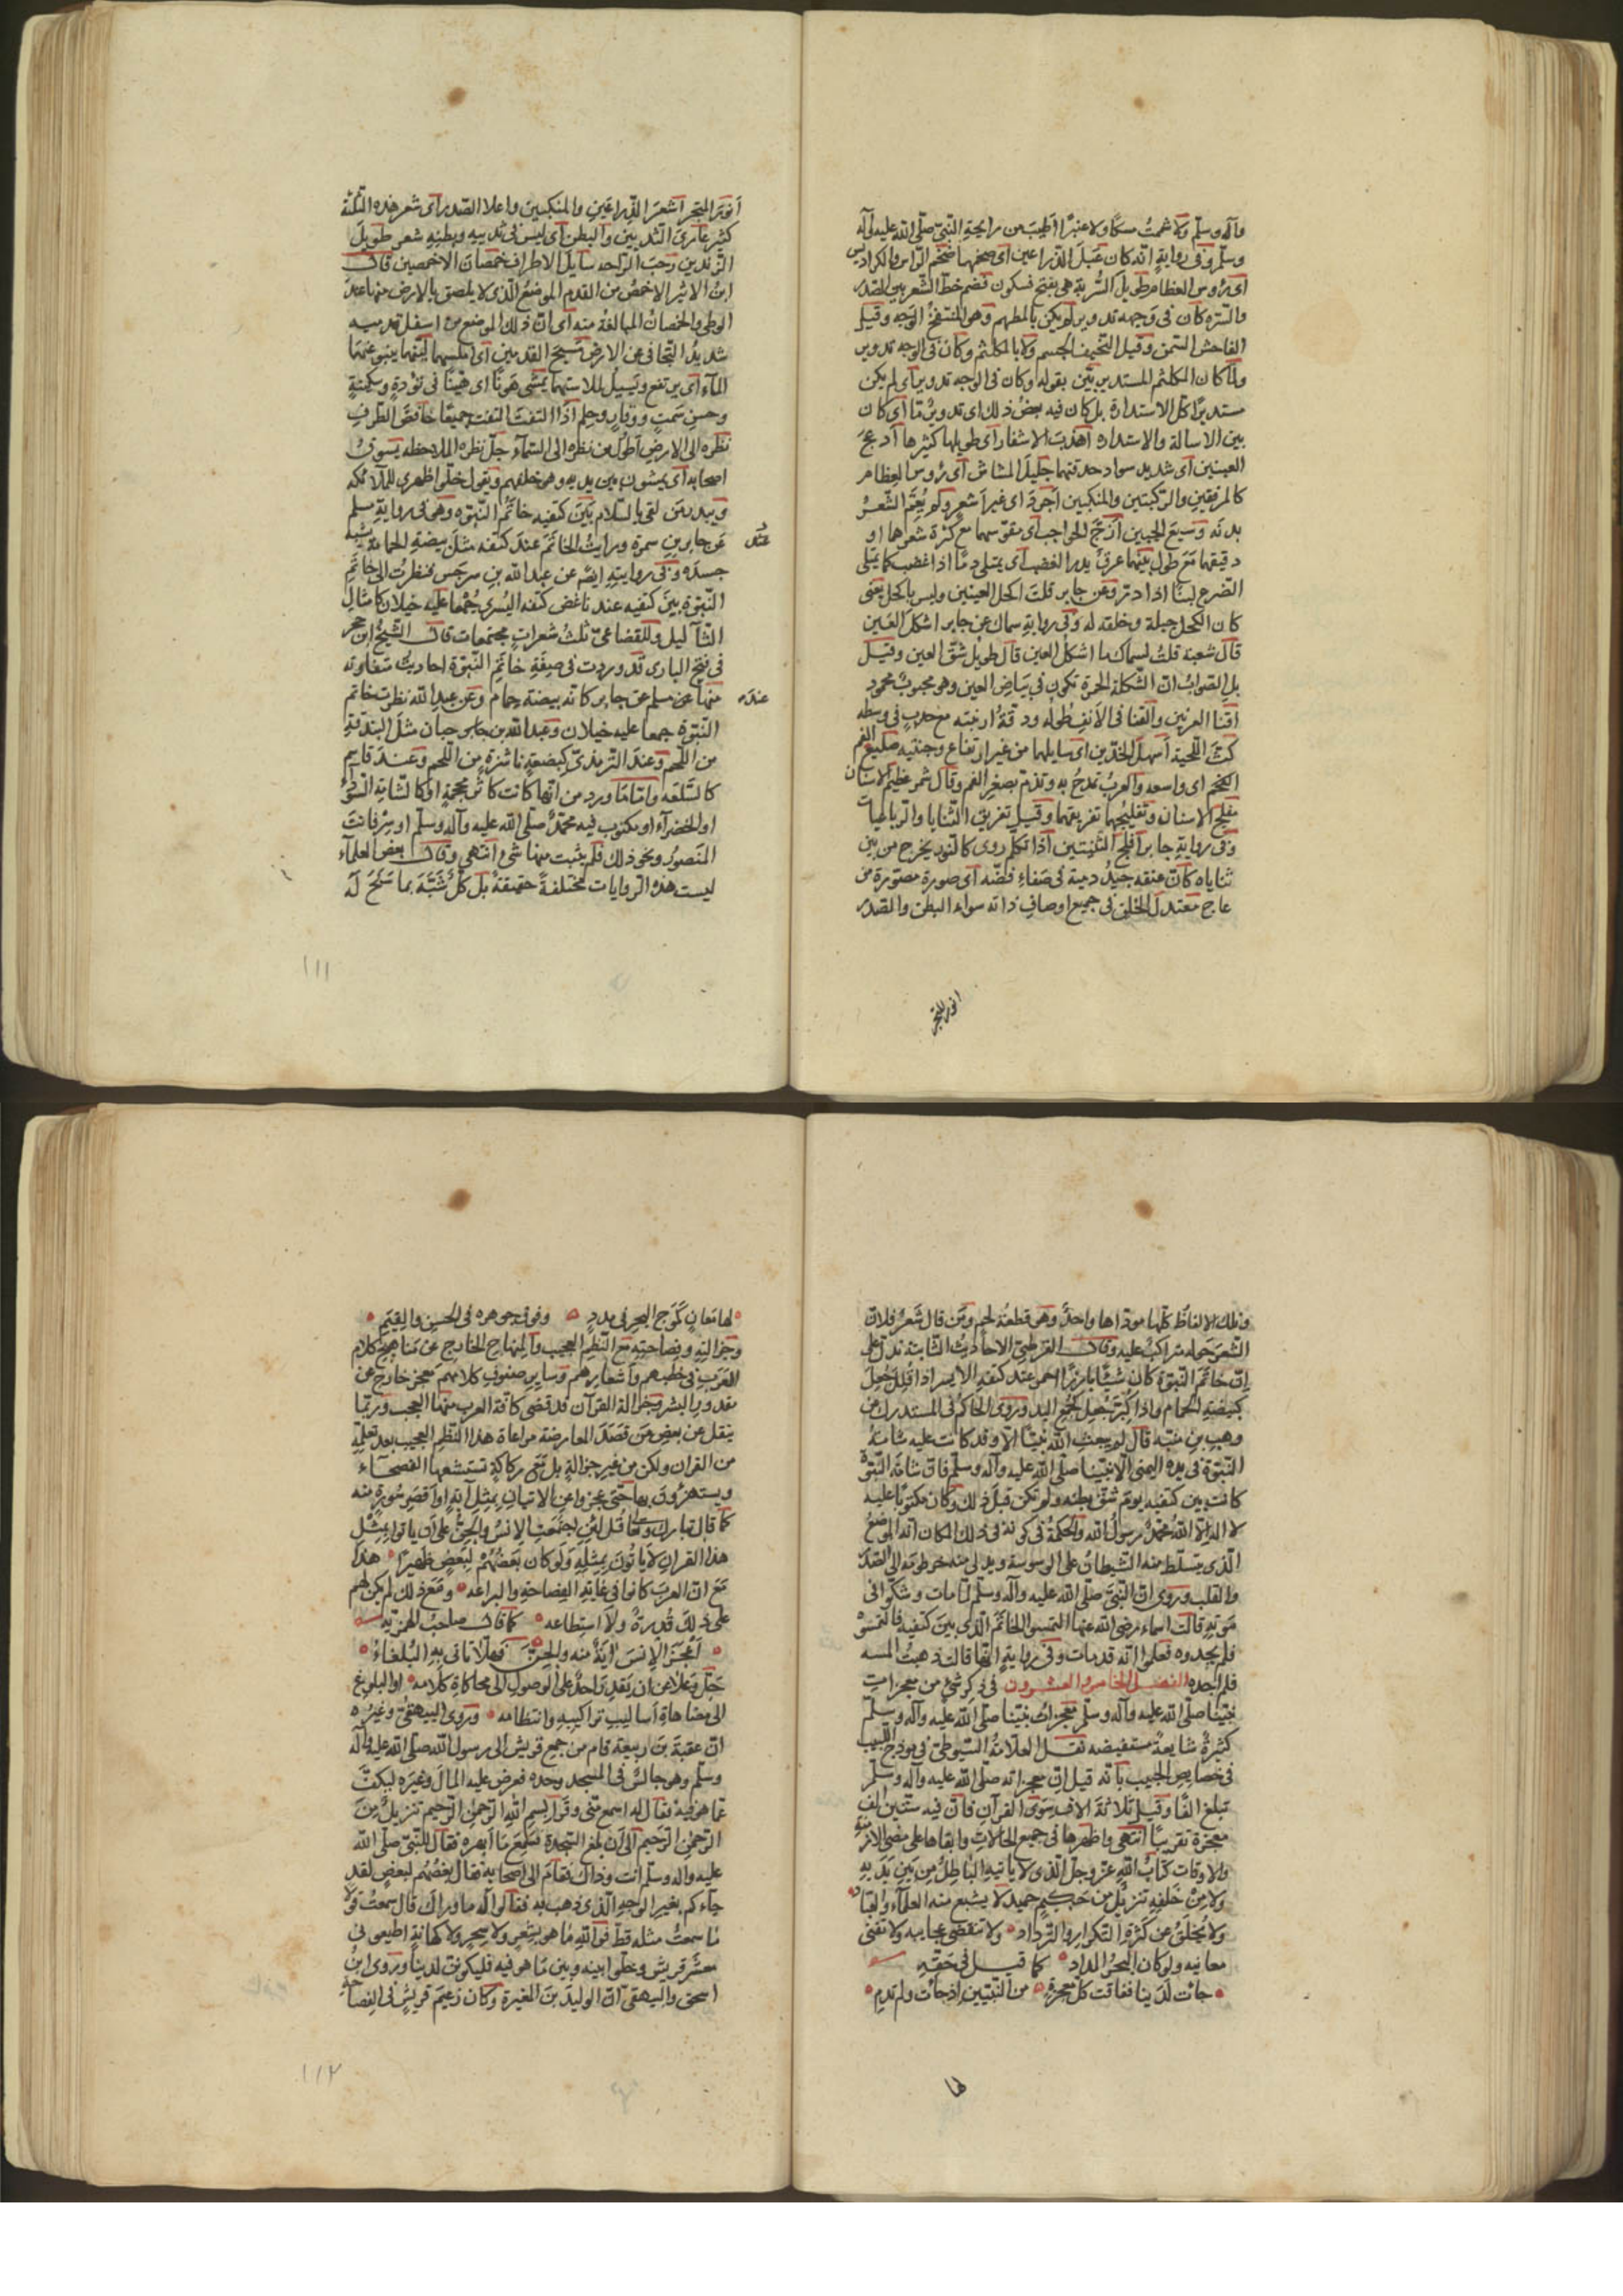 وآله وسلّم ولا شممتُ مسكًا ولا عنبرًا اطيبَ من رايحةِ النّبيّ صلّى الله عليه وآله
وسلّم وفى روايةٍ انّه كان عَبْلَ الذّراعين اى ضخمها ضخم الرّاس والكراديس
اى رؤوس العظام طويل المسْرُبة هى بفتح فسكون فضم خطّ الشّعر بين الصّدر
والسّرّه كان فى وجهه تدوير لم يكن بالمطهم وهو المنتفخ الوجه وقيل
الفاحش السّمن وقيل النّحيف الجسم ولا بالمكلثم وكان فى الوجه تدوير
ولمّا كان المكلثم المستدير بيّن بقوله وكان فى الوجه تدوير اى لم يكن
مستديرًا كلّ الاستدارة بل كان فيه بعضُ ذلك اى تدويرٌ ما اى كان
بين الاسالة والاستداره اهدبَ الاشفار اى طويلها كثيرها ادعجَ
العينين اى شديد سواد حدقتها جليلَ المشاش اى رؤوس العظام
كالمرفقين والركبتين والمنكبين اجردَ اى غير اشعر ولم يُعِمّ الشّعرُ
بدنه وسيعَ الجبين ازجَّ الحواجب اى مقوّسهما مع كثرة شعرها او
دقيقهما مَعَ طول بينهما عرقٌ يدرّ الغضب اى يمتلى دمًا اذا غضب كما يمتلى
الضّرع لبنًا اذا درّ وعن جابر قلت اكحل العينين وليس باكحل يعنى
كان الكحل جبلة وخلقه له وفى رواية سماك عن جابر اشكل العَين
قال شعبة قلتُ لسماك ما اشكل العين قال طويل شقّ العين وقيل
بل الصّوابُ انّ الشّكلة الحمرة تكون فى بَياضِ العين وهو محبوبٌ محمود
اقنَا العرنين والقنا فى الانف طُوله ودقّةُ ارنبته مع حدبٍ فى وسطه
كثَّ اللّحية اسهلَ الخدّين اى سايلهما من غير ارتفاع وجنتيه ضليع الفم
الضخم اى واسعه والعربُ تمدحُ به وتذمّ بصغر الفم وقال شمر عظيم الاسنان
مفلج الاسنان وتفليجها تفريقها وقيل تفريق الثّنايا والرّباعيات
وفى رواية جابر افلج الثّنيتين اذا تكلّم روى كالنّور يخرج من بين
ثناياه كانّ عنقه جيدُ دمية فى صَفاء فضّه اى صورة مصوّرة من
عاج معتدلَ الخلق فى جميع اوصافِ ذاته سواء البطن والصّدر
انور المتجرد
اَنورَ المتجرّد اشعرَ الذّراعَينِ والمنكبين واعلا الصّدر اى شعر هذه الثّلثة
كثير عارىَ الثّديين والبطن اى ليس فى ثدييه وبطنِه شعر طويلَ
الزّندين رحبَ الرّاحه سايلَ الاطراف خُمصانَ الاخمصين قال
ابنُ الاثير الاخمصُ من القدم الموضعُ الّذى لا يلصق بالارض منها عند
الوطى والخمصانُ المبالغُ منه اى انّ ذلك الموضع من اسفل قدميه
شديدُ التّجافى عن الارض مَسيحَ القدمين اى املسهما ليّنهما ينبو عنهما
المآء اى يرتفع ويَسيلُ لملاستهما يمشى هَونًا اى هيّنًا فى تؤدةٍ وسكينةٍ
وحسنِ سَمتٍ ووقارٍ وحلم اذا التفتَ التفت جميعًا خافضَ الطّرفِ
نظره الى الارض اطول من نظره الى السّماء جلّ نظره الملاحظه يسوقُ
اصحابه اى يمشون بين يديه وهو خلفهم ويقول خلّوا ظهرى للملائكه
ويبدر مَن لقى بالسّلام بَينَ كتفيه خاتمُ النّبوّه وهو فى روايةِ مسلم
عَن جابرِ بنِ سمرة ورايتُ الخاتمَ عند كتفه مثلَ بيضةِ الحمامة يشبه
جسدَه وفى روايته ايضًا عن عبد الله بن سرجس فنظرتُ الى خاتَمِ
النّبوّة بينَ كتفيه عند ناغض كتفه اليُسرى جُمعًا عليه خيلان كامثالِ
الثّآليل وللقضاعىّ ثلثُ شعراتٍ مجتمعات قال الشّيخُ ابن حجر
فى فتح البارى قد وردت فى صِفَةِ خاتَمِ النّبوّة احاديث متقاربه
منها عن مسلم عن جابر كانّه بيضة حمام وعن عبد الله نظرت خاتم
عنده
النّبوّة جمعا عليه خيلان وعند ابن حبان مثلَ البندقةِ
من اللّحم وعندَ التّرمذىّ كبضعةٍ ناشزةٍ من اللّحم وعند قاسم
كالسّلعَه وامّا ما ورد من انّها كانت كاثر محجمةٍ او كالشّامة السّودَاء
او الخضراء او مكتوب فيه محمّدٌ صلّى الله عليه وآله وسلّم او سِرْ فانتَ
المنصورُ ونحو ذلك فلم يثبت منها شىء انتهى وقال بعض العلمآء
ليست هذه الرّوايات مختلفةً حقيقةً بل كلٌّ شَبَّهَ بما سَنَحَ لَهُ
١١١
وتلك الالفاظ كلّها مودّاها واحدٌ وهو قطعة لحم ومَن قال شَعرٌ فلانّ
الشّعرَ حوله متراكبٌ عليه وقال القرطبىّ الاحاديثُ الثّابتة تدلّ على
انّ خاتَمَ النّبوّة كان شيئًا بارزًا احمر عند كتفه الايسر اذا قُلّل جُعلَ
كبيضةِ الحمام واذا كُبّرَ جُعل كجُمع اليد وروى الحاكم فى المستدرك عن
وهبِ بنِ منبّه قال لم يبعث الله نبيًّا الّا وقد كانت عليه شامةُ
النّبوّة فى يده اليمنى الّا نبيّنا صلّى الله عليه وآله وسلّم فانّ شامَة النّبوّة
كانت بين كتفيه يوم شقّ بطنه ولم تكن قبل ذلك وكان مكتوبًا عليه
لا اله الّا الله محمّدٌ رسول الله والحكمةُ فى كونه فى ذلك المكان انّه الموضعُ
الّذى يتسلّط منه الشّيطانُ على الوسوسة ويدلى منه خرطومَه الى الصّدر
والقلب وروى انّ النّبىّ صلّى الله عليه وآله وسلّم لمّا مات وشكّوا فى
مَوته قالت اسماء رضى الله عنها التمسوا الخاتَمَ الّذى بينَ كتفيه فالتمسوه
فلم يجدوه فعلموا انّه قد مات وفى روايةٍ انّها قالت ذهبتُ المسه
فلم اجده الفصل الخامس والعشرون فى ذكر شىءٍ من معجزاتِ
نبيّنا صلّى الله عليه وآله وسلّم معجزاتُ نبيّنا صلّى الله عليه وآله وسلّم
كثيرةٌ شايعةٌ مستفيضه نقل العلّامةُ السّيوطىّ فى نموذج اللّبيب
فى خصايصِ الحبيب بانّه قيل انّ معجزاته صلى الله عليه وآله وسلّم
تبلغ الفًا وقيل ثلاثةَ الاف سِوَى القرآن فانّ فيه ستّين الف
معجزة تقريبًا انتهى واظهرها فى جميع الحالات وابقاها على مضىّ الازمنةِ
والاوقات كتابُ الله عزّ وجلّ الّذى لا ياتيه الباطلُ مِن بَينِ يَدَيهِ
ولا مِنْ خَلفِه تنزيلٌ من حَكيم حميد لا يشبع منه العلمآء والعبّاد
ولا يُخلَقُ عن كثرة التّكرار والتّرداد ولا تنقضى عجايبه ولا تفنى
معانيه ولو كان البحرُ المداد كما قيل فى حَقّه
جاءت لدينا ففاقت كلّ معجزةٍ من النّبيّين اذ جاءت ولم تدمِ
لها
لها مَعانٍ كَمَوجِ البحرِ فى مددٍ وفوق جوهره فى الحسنِ والقِيَمِ
وجزالتِه وفصاحته مع النّظمِ العجيب والمنهاج الخارج عَن مَناهج كلام
العَرَب فى خطبهم واشعارهم وساير صنوفِ كلامهم معجز خارج عن
مقدورِ البشر وجزالة القرآن قد قضى كافة العرب منها العجب وربّما
ينقل عن بعض مَن قصَدَ المعارضة مراعاة هذا النّظم العجيب بعد تعلّمه
من القران ولكن من غير جزالةٍ بل مع ركاكةٍ تستبشعها الفصحآء
ويستهزؤن بها حتّى عجزوا عن الاتيان بمثل آيةٍ او اقصرِ سُورةٍ منه
كما قال تبارك وتعا قل لئن اجتمعت الانسُ والجنّ على ان ياتوا بمثلِ
هذا القران لا ياتونَ بمثلِه ولو كان بعضُهُم لبعضٍ ظَهيرًا هذا
مَعَ انّ العربَ كانوا فى غايةِ الفصاحةِ والبراعه ومَعَ ذلك لم يكن لهم
على ذلك قُدرةٌ ولا استطاعه كما قال صاحبُ الهمزيّه
اعجزَ الانسَ آيةٌ منه والجنّ فهلّا تاتى بهِ البُلَغاءُ
جَلّ وعَلا عن ان يَقدِرَ احدٌ على الوصول الى محاكاةِ كلامه او البلوغ
الى مضاهاةِ اساليبِ تراكيبِه وانتظامه وروى البيهقىّ وغيرُه
انّ عقبة بنَ ربيعة قام من جمعِ قريش الى رسول الله صلّى الله عليه وآله
وسلّم وهو جالسٌ فى المسجد وحده فعرض عليه المالَ وغيَره ليكفَّ
عمّا هو فيه فقال له اسمع منّى وقرا بسم الله الرّحمن الرّحيم تنزيلٌ مِنَ
الرّحمنِ الرّحيم الى ان بلغ السّجدة فسَمِعَ ما ابهره فقال للنّبىّ صلّى الله
عليه واله وسلّم انت وذاك فقام الى اصحابه فقال بعضُهم لبعض لقد
جآءكم بغيرِ الوجهِ الّذى ذهب به فقالوا له ما وراك قال سمعتُ قولا
مَا سمعتُ مثله قطّ فوالله ما هو بشعرٍ ولا سحرٍ ولا كهانةٍ اطيعونى
معشرَ قريش وخلّوا بينه وبين مَا هو فيه فليكوننّ لدينا وروى ابنُ
اسحق والبيهقىّ انّ الوليدَ بنَ المغيرة وكان زعيمَ قريشٍ فى الفصاحة
١١٢